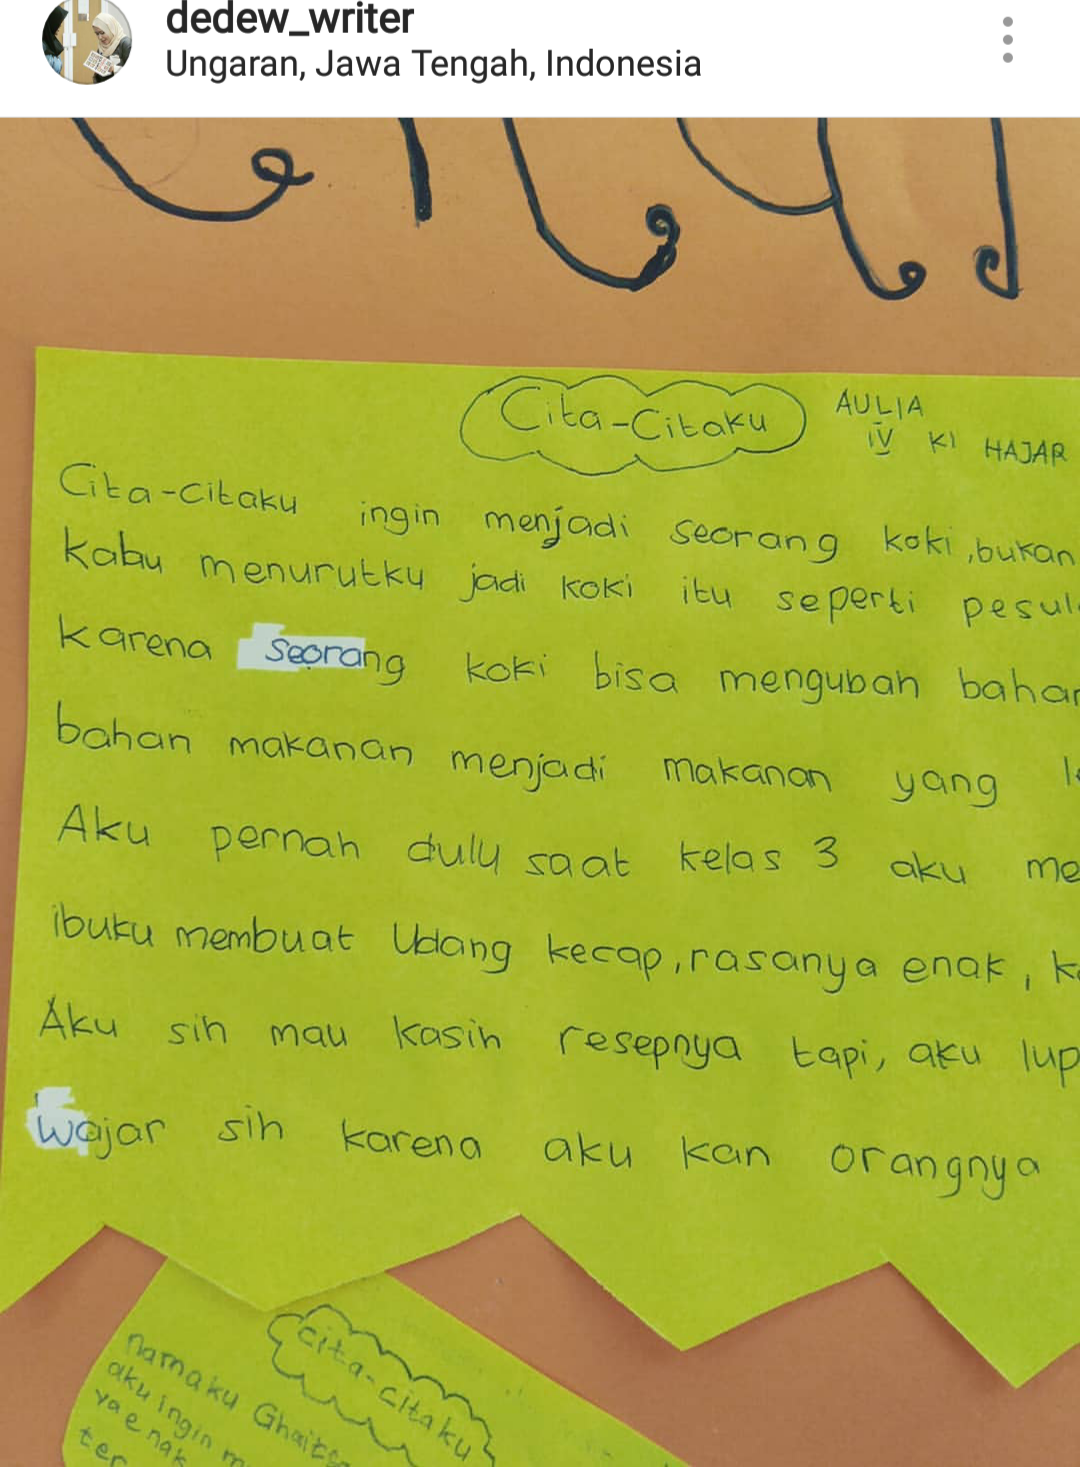 dedew_writer
Ungaran, Jawa Tengah, Indonesia
Cita-Citaku
AULIA
IV KI HAJAR
Cita-citaku ingin menjadi seorang koki, bukan
kabu menurutku jadi koki itu seperti pesul
karena seorang koki bisa mengubah bahan
bahan makanan menjadi makanan yang
Aku pernah dulu saat kelas 3 aku me
ibuku membuat Udang kecap, rasanya enak,
Aku sih mau kasih resepnya tapi, aku lup
wajar sih karena aku kan orangnya
Cita-citaku
namaku Ghaits
aku ingin m
ya enak
ter